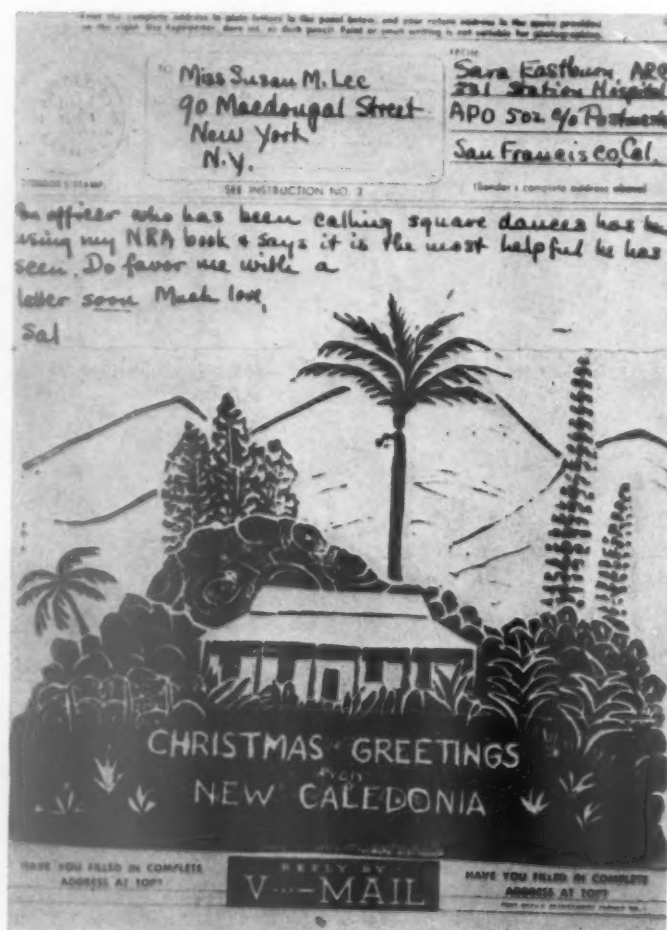 Print the complete address in plain letters in the panel below, and your return address in the space provided
on the right. Use typewriter, dark ink, or dark pencil. Faint or small writing is not suitable for photographing.
TO
Miss Susan M. Lee
90 Macdougal Street
New York
N.Y.
FROM
Sara Eastburn, ARC
331 Station Hospital
APO 502 c/o Postmaste
San Francisco, Cal.
SEE INSTRUCTION NO. 2
(Sender's complete address above)
An officer who has been calling square dances has be
using my NRA book & says it is the most helpful he has
seen. Do favor me with a
letter soon Much love,
Sal
CHRISTMAS GREETINGS
from
NEW CALEDONIA
HAVE YOU FILLED IN COMPLETE
ADDRESS AT TOP?
REPLY BY
V···—MAIL
HAVE YOU FILLED IN COMPLETE
ADDRESS AT TOP?